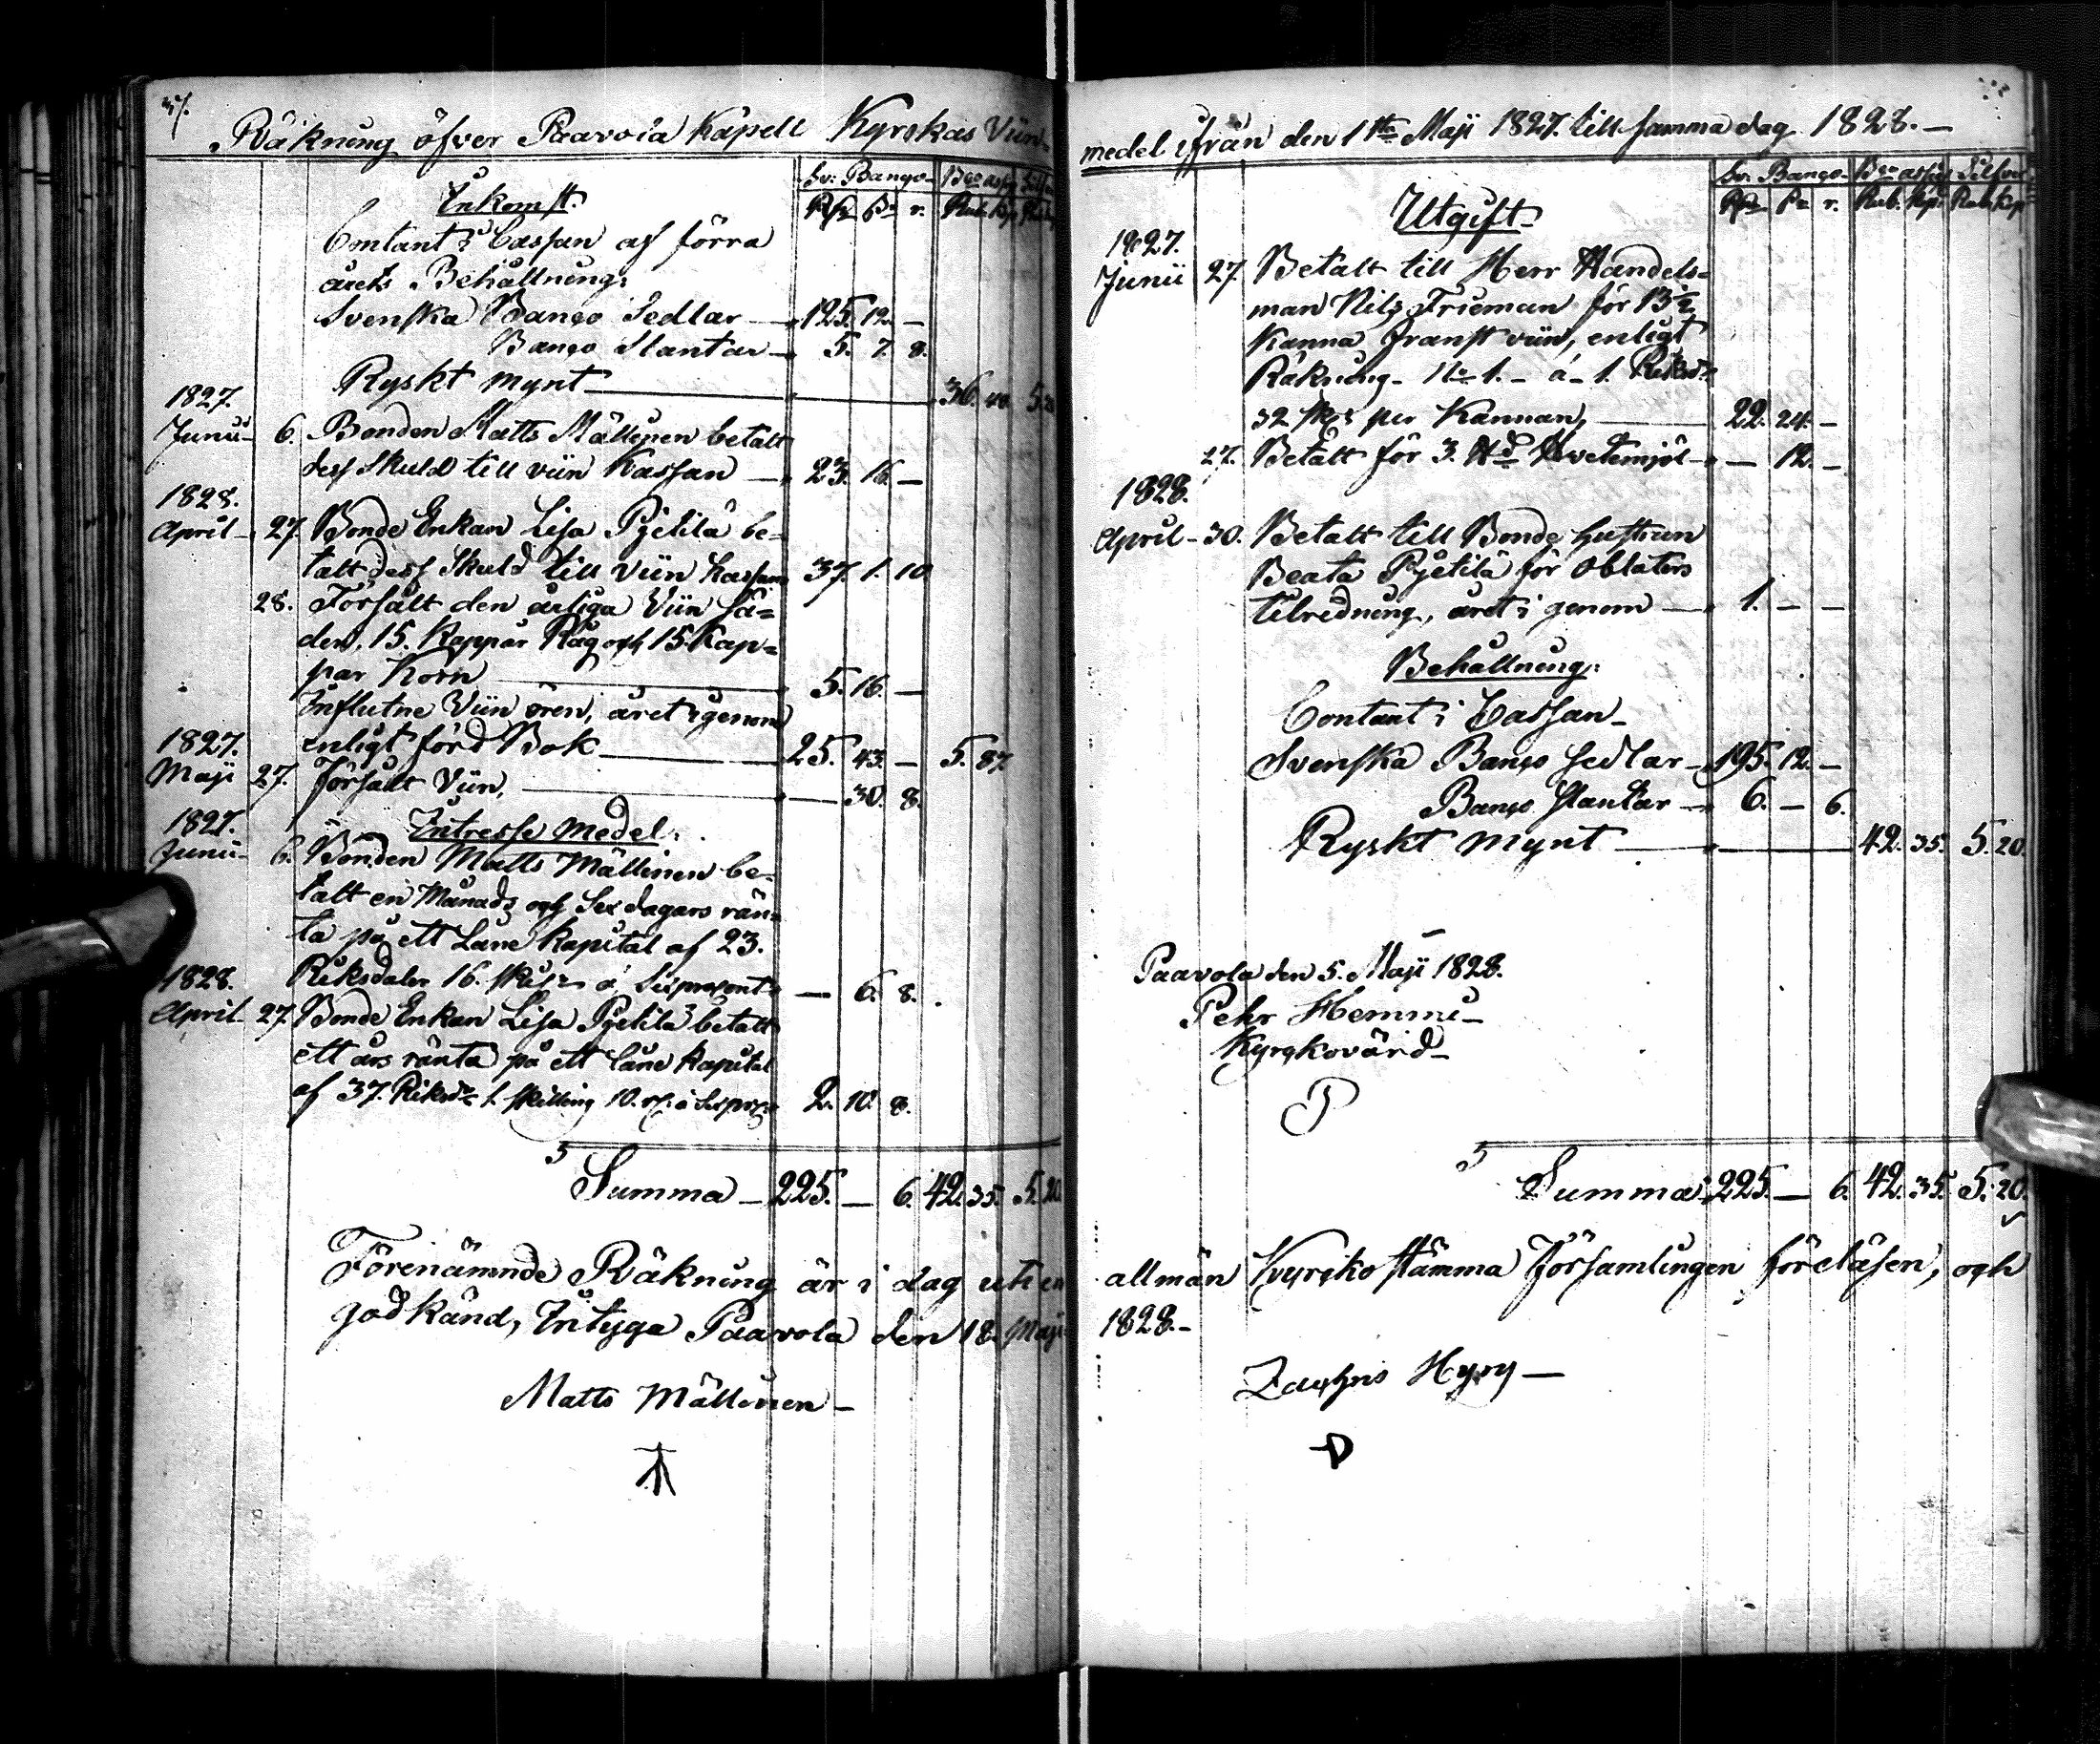 Räkning öfver Paavola Kapell Kyrckas Viin-
Sv: Banco
Rdr sk r. Rub. Kop
Inkomst.
Contant i Cassan af förra
årets Behållning:
Svenska Banco Sedlar — 125. 12. —
Banco Slantar — 5. 7. 8.
Ryskt Mynt — 36. 5.
1827.
Junii 6. Bonden Matts Mällinen betalt
dess Skuld till viin Kassan — 23. 16. —
1828.
April 27. Bonde Enkan Lisa Pjetilä be-
talt dess Skuld till viin Kassan 37. 1. 10
28. Försålt den årliga Viin Sä-
den, 15. Kappar Råg och 15 Kap-
par Korn — 5. 16. —
Influtne Viin ören, året igenom
enligt förd Bok — 25. 43. — 5. 87
1827.
Maji 27. Försålt Viin, — 30. 8.
Intresse Medel.
1827.
Junii 6. Bonden Matts Mällinen be-
talt en Månads och Sex dagars rän-
ta på ett Låne kapital af 23.
Riksdaler 16. skill: à Sexprocent — 6. 8.
1828.
April 27. Bonde Enkan Lisa Pjetilä betalt
ett års ränta på ett låne kapital
af 37. Riksd. 1. Skilling 10. r: à Sexproc 2. 10. 8.
Summa — 225. — 6. 42. 35. 5. 20
Förenämnde Räkning är i dag uti en
godkänd, Intyga Paavola den 18. Maji
Matts Mällinen —
medel ifrån den 1ste Maji 1827. till samma dag 1828. —
Sv. Banco Bco assig Silfver
Rdr sk r. Rub. Kop: Rub. Kop
Utgift
1827.
Junii 27. Betalt till Herr Handels-
man Nils Frieman för 13½
Kanna franst viin, enligt
Räkning No 1. — à 1. Riksd:
32 sk: per Kannan, — 22. 24. —
27. Betalt för 3. Hvetemjöl — — 12. —
1828.
April — 30. Betalt till Bonde hustrun
Beata Pjetilä för Oblaters
tilredning, året i genom — 1. — —
Behållning:
Contant i Cassan —
Svenska Banco Sedlar — 195. 12. —
Banco Slantar — 6. — 6.
Ryskt Mynt — 42. 35. 5. 20.
Paavola den 5. Maji 1828.
Pehr Hemmi —
Kyrckovärd —
P
Summa 225. — 6. 42. 35. 5. 20.
allmän Kyrcko stämma Församlingen föreläsen, och
1828. —
Hyry —